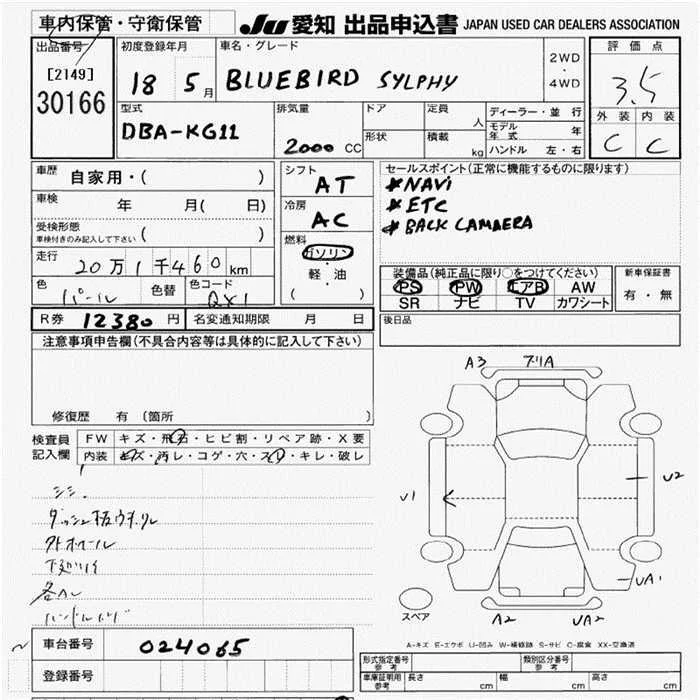 車内保管・守衛保管
JU 愛知 出品申込書 JAPAN USED CAR DEALERS ASSOCIATION
出品番号
[2149]
30166
初度登録年月
18 5月
車名・グレード
BLUEBIRD SYLPHY
2WD
・
4WD
評価点
3.5
外装 内装
C C
型式
DBA-KG11
排気量
2000 CC
ドア
形状
定員 人
積載 kg
ディーラー・並行
モデル年式 年
ハンドル 左・右
車歴 自家用・( )
車検 年 月( 日)
受検形態
車検付きのみ記入して下さい ( )
走行 20万1千460km
色 パール 色替 色コード QX1
シフト
AT
冷房
AC
燃料
ガソリン
・
軽・油
( )
セールスポイント(正常に機能するものに限ります)
*NAVi
*ETC
*BACK CAMAERA
装備品(純正品に限り○をつけてください)
PS PW エアB AW
SR ナビ TV カワシート
新車保証書
有・無
R券 12380円 名変通知期限 月 日
後日品
注意事項申告欄(不具合内容等は具体的に記入して下さい)
修復歴 有 (箇所 )
検査員記入欄
FW キズ・飛石・ヒビ割・リペア跡・X要
内装 キズ・汚レ・コゲ・穴・スレ・キレ・破レ
A3
V1
U2
UA1
A2 UA2
スペア
A-キズ E-エクボ U-凹み W-補修跡 S-サビ C-腐食 XX-交換済
車台番号 024065
登録番号
形式指定番号 参考
類別区分番号 参考
車庫証明用 参考 長さ cm 幅 cm 高さ cm